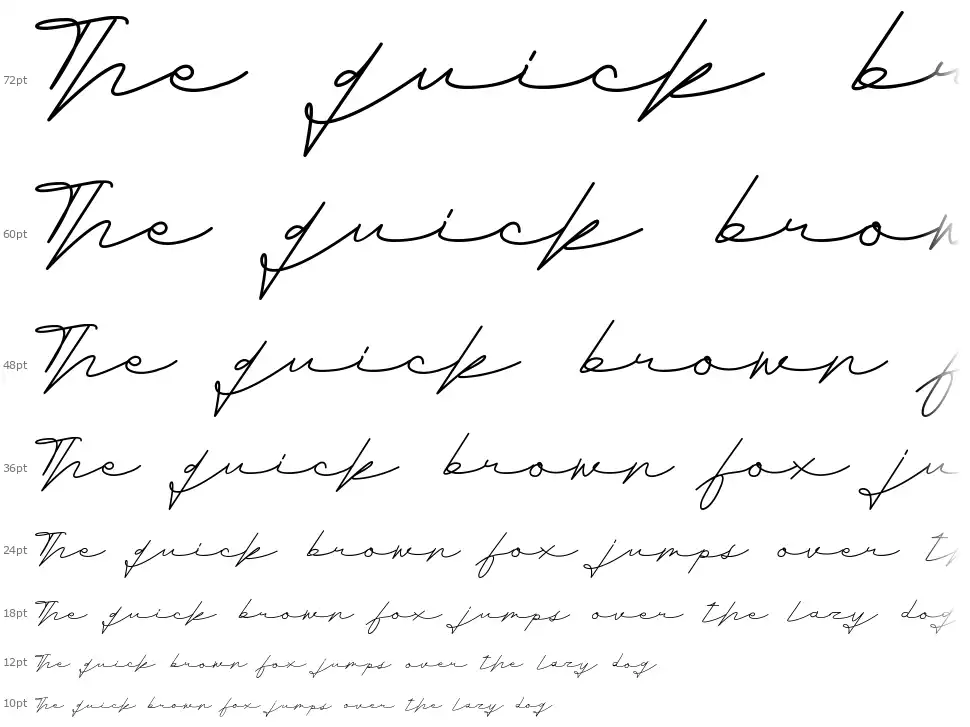 72pt The quick br
60pt The quick brown
48pt The quick brown f
36pt The quick brown fox ju
24pt The quick brown fox jumps over th
18pt The quick brown fox jumps over the lazy dog
12pt The quick brown fox jumps over the lazy dog
10pt The quick brown fox jumps over the lazy dog